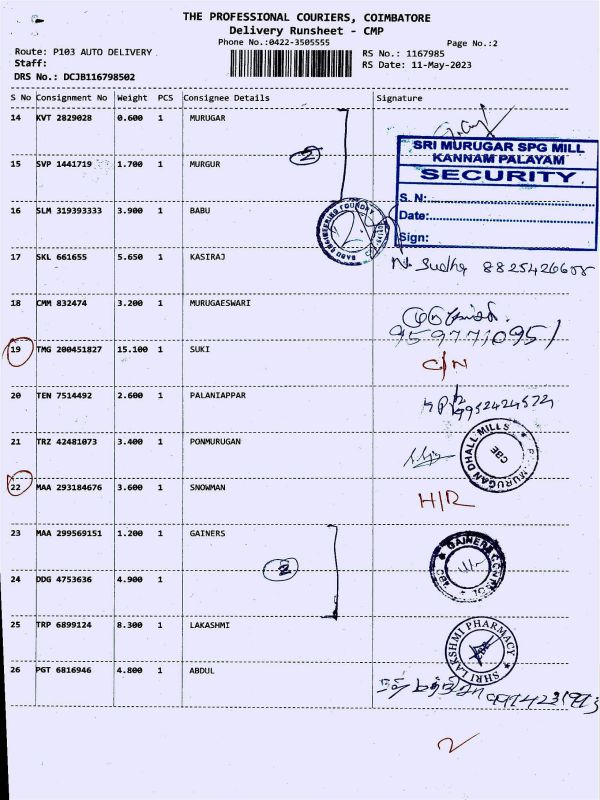 THE PROFESSIONAL COURIERS, COIMBATORE
Delivery Runsheet - CMP
Phone No.:0422-3505555
Page No.:2
Route: P103 AUTO DELIVERY
RS No.: 1167985
Staff:
RS Date: 11-May-2023
DRS No.: DCJB116798502
S No Consignment No Weight PCS Consignee Details Signature
14 KVT 2829028 0.600 1 MURUGAR
2
SRI MURUGAR SPG MILL
KANNAM PALAYAM
SECURITY
S. N:
Date:
Sign:
15 SVP 1441719 1.700 1 MURGUR
16 SLM 319393333 3.900 1 BABU
BABU ENGINEERING FOUNDRY
17 SKL 661655 5.650 1 KASIRAJ
N. Sudha 8825426608
18 CMM 832474 3.200 1 MURUGAESWARI
9597710951
19 TMG 200451827 15.100 1 SUKI
C/N
20 TEN 7514492 2.600 1 PALANIAPPAR
9952424572
21 TRZ 42481073 3.400 1 PONMURUGAN
MURUGAN DHALL MILLS
CBE
22 MAA 293184676 3.600 1 SNOWMAN
H/R
23 MAA 299569151 1.200 1 GAINERS
2
24 DDG 4753636 4.900 1
25 TRP 6899124 8.300 1 LAKASHMI
SHRI LAKSHMI PHARMACY
26 PGT 6816946 4.800 1 ABDUL
2